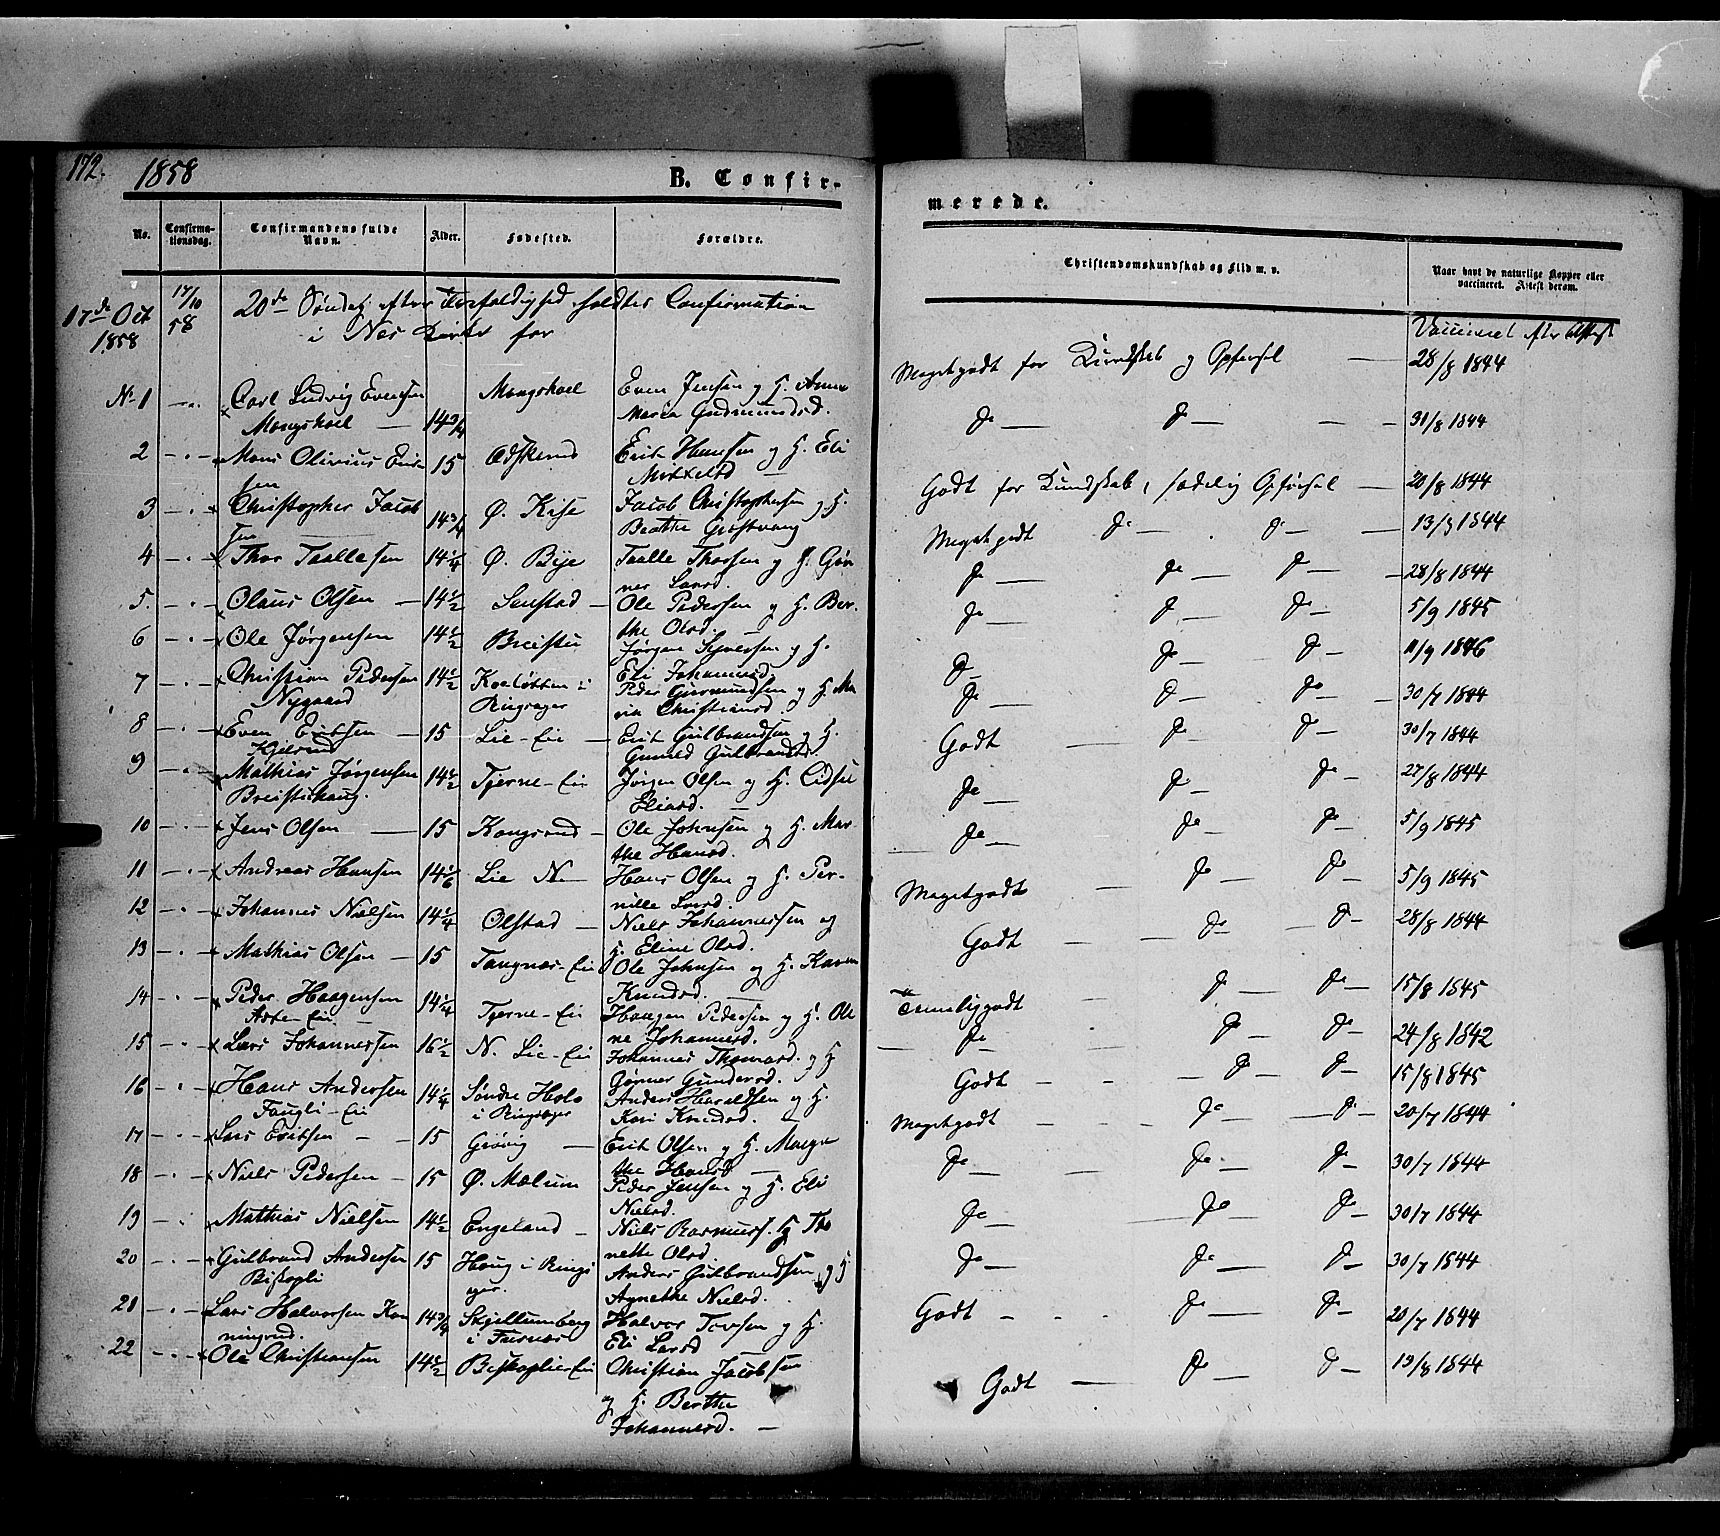 172.
1858
B. Confir-
No.
Confirma-
tionsdag.
Confirmandens fulde
Navn.
Alder.
Fødested.
Forældre.
17de Oct
1858
17/10
58
20de Søndag efter Trefoldighed holdtes Confirmation
i Nes Kirke for
No 1 Carl Ludvig Evensen Mengshoel Even Jensen og H. Anne
Mengshoel 14 3/4 Maria Gudmundsd.
2 Mons Olivius Erik- 15 Erik Hansen og H. Eli
sen Mikkelsd
3 Christopher Jacob 14 3/4 Ø. Kise Jacob Christophersen og H
sen Berthe
4 Thor Taallesen 14 1/4 Ø. Bye Taalle Thorsen og H. Gun
ner Larsd.
5. Olaus Olsen 14 1/2 Senstad Ole Pedersen og H. Ber-
the Olsd.
6 Ole Jørgensen 14 1/2 Jørgen Syversen og H.
Eli Johannesd.
7 Christian Pedersen 14 1/2 i Peder Gudmundsen og H. Ma
Nygaard Ringsager rie Christiansd
8 Even Eriksen 15 Lie-Eie Erik Gulbrandsen og H.
Gunild Gulbrandsd
9 Mathias Jørgensen 14 1/2 Tjerne-Eie Jørgen Olsen og H.
Breistuhaug. Eliasd.
10 Jens Olsen 15 Kongsrud Ole Johnsen og H. Mar-
the Hansd.
11 Andreas Hansen 14 1/6 Lie N. Hans Olsen og H. Per-
nille Larsd.
12 Johannes Nielsen 14 1/4 Olstad Niels Johannessen og
H. Eline Olsd.
13 Mathias Olsen 15 Tangnæs-Eie Ole Johnsen og H. Karen
Knudsd.
14 Peder Haagensen 14 1/4 Tjerne-Eie Haagen Pedersen og H. Ole
ne Johannesd.
15 Lars Johannessen 16 1/2 N. Lie-Eie Johannes Thomasd. og H
Gunnor Gundersd.
16 Hans Andersen 14 1/4 Søndre Anders Haraldsen og H.
i Ringsager Kari Knudsd.
17 Lars Eriksen 15 Grøvig Erik Olsen og H. Marge
the Hansd
18 Niels Pedersen 15 Ø. Mælum Peder Jensen og H. Eli
Nielsd.
19 Mathias Nielsen 14 1/2 Engeland Niels Rasmuss. H Tho
nette Olsd.
20 Gulbrand Andersen 15 Haug i Rings Anders Gulbrandsen og H
Biskopli ager. Agnethe Nielsd.
21 Lars Halvorsen Kon 14 3/4 Skjellumberg Halvor Torsen og H.
ningrud. i Furnæs Eli Larsd
22 Ole Christiansen 14 1/2 Biskoplie-Eie Christian Jacobsen
og H. Berthe
Johannesd.
merede.
Christendomskundskab og Flid m. v.
Naar havt de naturlige Kopper eller
vaccineret. Attest derom.
Vaccineret efter Attest
Megetgodt for Kundskab og Opførsel 28/8 1844
do do 31/8 1844
Godt for Kundskab, sædelig Opførsel 20/8 1844
Megetgodt do do 13/9 1844
do do do 28/8 1844
do do do 5/9 1845
do do do 11/9 1846
do do do 30/7 1844
Godt do do 30/7 1844
do do do 27/8 1844
do do do 5/9 1845
Megetgodt do do 5/9 1845
Godt do do 28/8 1844
Temmeliggodt do do 15/8 1845
do do do 24/8 1842
Godt do do 15/8 1845
Megetgodt do do 20/7 1844
do do do 30/7 1844
do do do 30/7 1844
do do do 30/7 1844
Godt do do 20/7 1844
Godt do do 19/8 1844